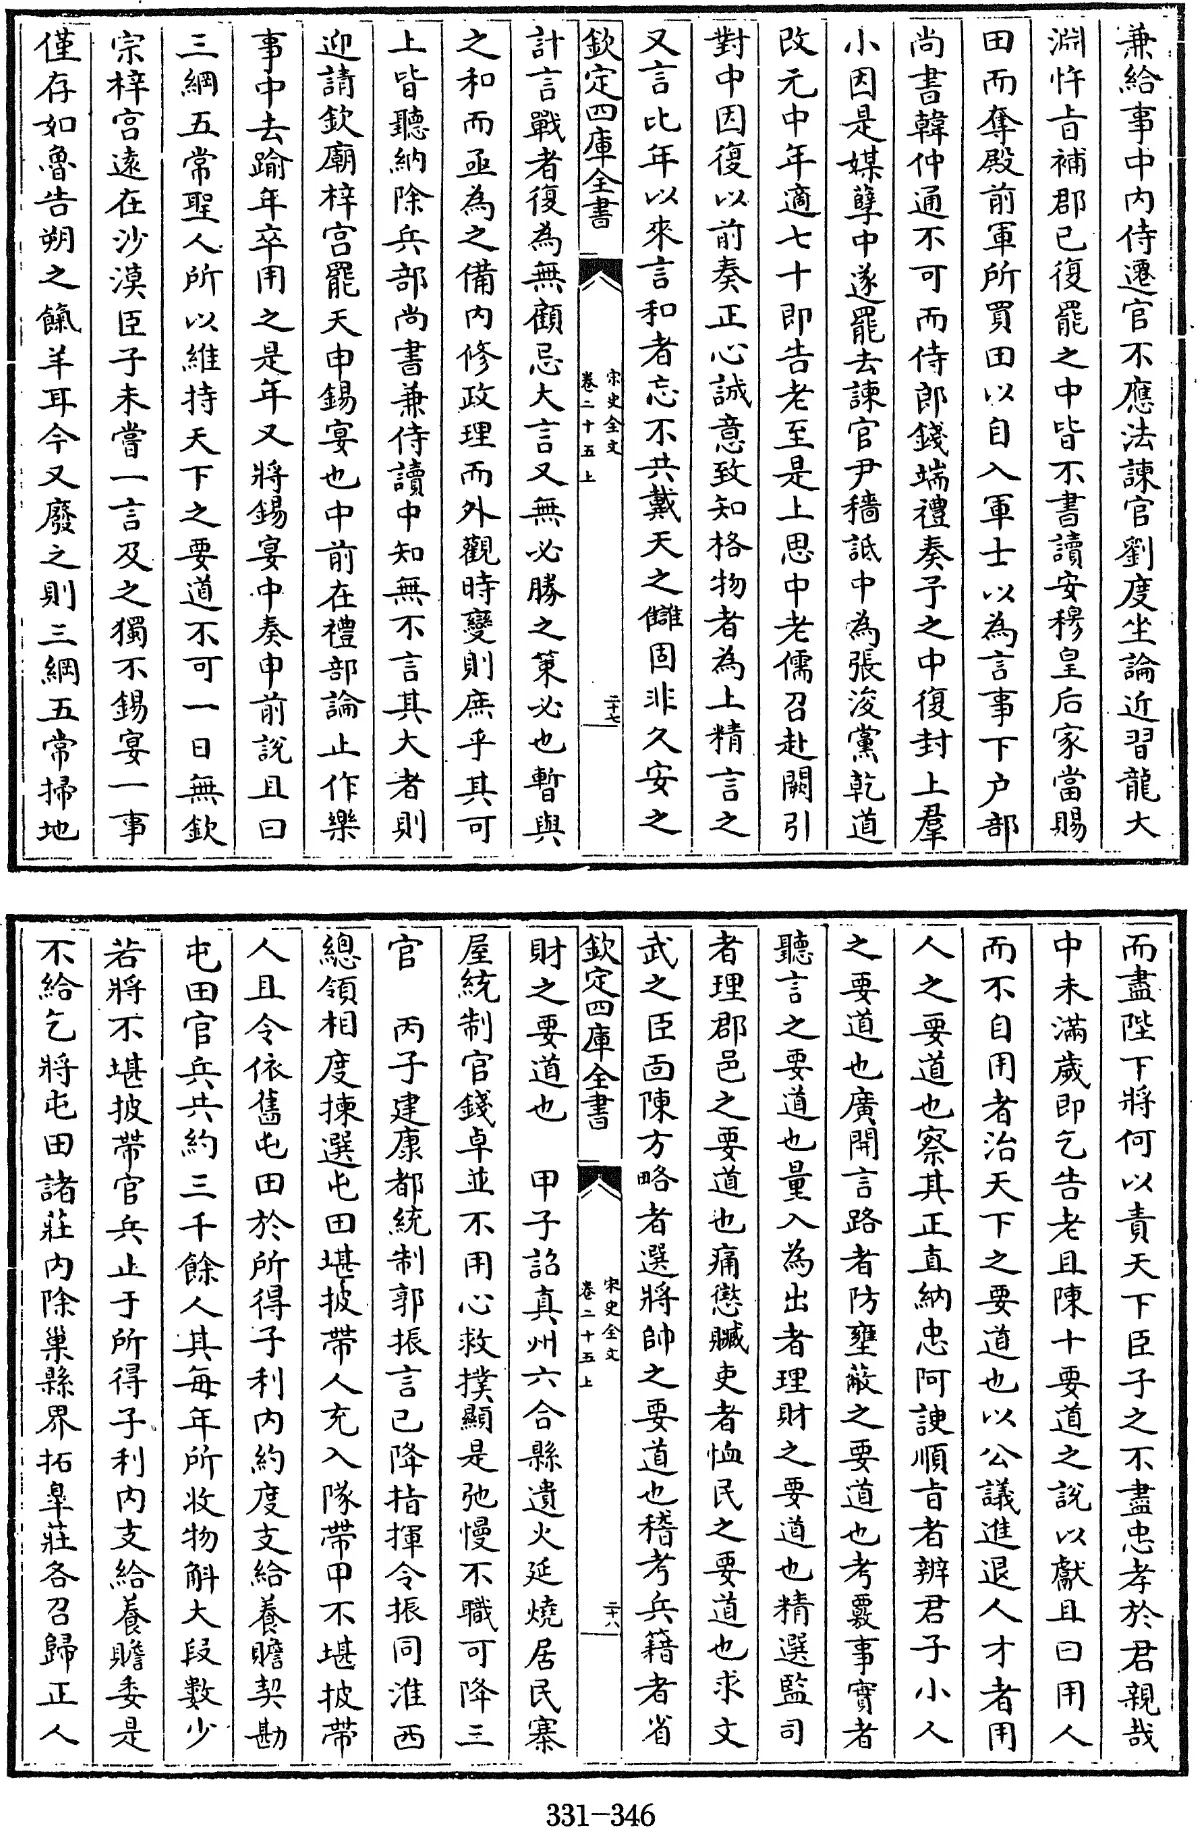 兼給事中内侍遷官不應法諫官劉度坐論近習龍大
淵忤㫖補郡已復罷之中皆不書讀安穆皇后家當賜
田而奪殿前軍所買田以自入軍士以為言事下户部
尚書韓仲通不可而侍郎錢端禮奏予之中復封上羣
小因是媒孽中遂罷去諫官尹穡詆中為張浚黨乾道
改元中年適七十即告老至是上思中老儒召赴闕引
對中因復以前奏正心誠意致知格物者為上精言之
又言比年以來言和者忘不共戴天之讎固非久安之
欽定四庫全書
宋史全文
卷二十五上
二十七
計言戰者復為無顧忌大言又無必勝之策必也暫與
之和而亟為之備内修政理而外觀時變則庶乎其可
上皆聽納除兵部尚書兼侍讀中知無不言其大者則
迎請欽廟梓宫罷天申錫宴也中前在禮部論止作樂
事中去踰年卒用之是年又將錫宴中奏申前説且曰
三綱五常聖人所以維持天下之要道不可一日無欽
宗梓宫遠在沙漠臣子未嘗一言及之獨不錫宴一事
僅存如魯告朔之餼羊耳今又廢之則三綱五常掃地
而盡陛下將何以責天下臣子之不盡忠孝於君親哉
中未滿歲即乞告老且陳十要道之説以獻且曰用人
而不自用者治天下之要道也以公議進退人才者用
人之要道也察其正直納忠阿諛順㫖者辨君子小人
之要道也廣開言路者防壅蔽之要道也考覈事實者
聽言之要道也量入為出者理財之要道也精選監司
者理郡邑之要道也痛懲贓吏者恤民之要道也求文
武之臣面陳方略者選將帥之要道也稽考兵籍者省
欽定四庫全書
宋史全文
卷二十五上
二十八
財之要道也　甲子詔真州六合縣遺火延燒居民寨
屋統制官錢卓並不用心救撲顯是弛慢不職可降三
官　丙子建康都統制郭振言已降指揮令振同淮西
總領相度揀選屯田堪披帶人充入隊帶甲不堪披帶
人且令依舊屯田於所得子利内約度支給養贍契勘
屯田官兵共約三千餘人其每年所收物斛大段數少
若將不堪披帶官兵止于所得子利内支給養贍委是
不給乞將屯田諸莊内除巢縣界柘臯莊各召歸正人
331-346